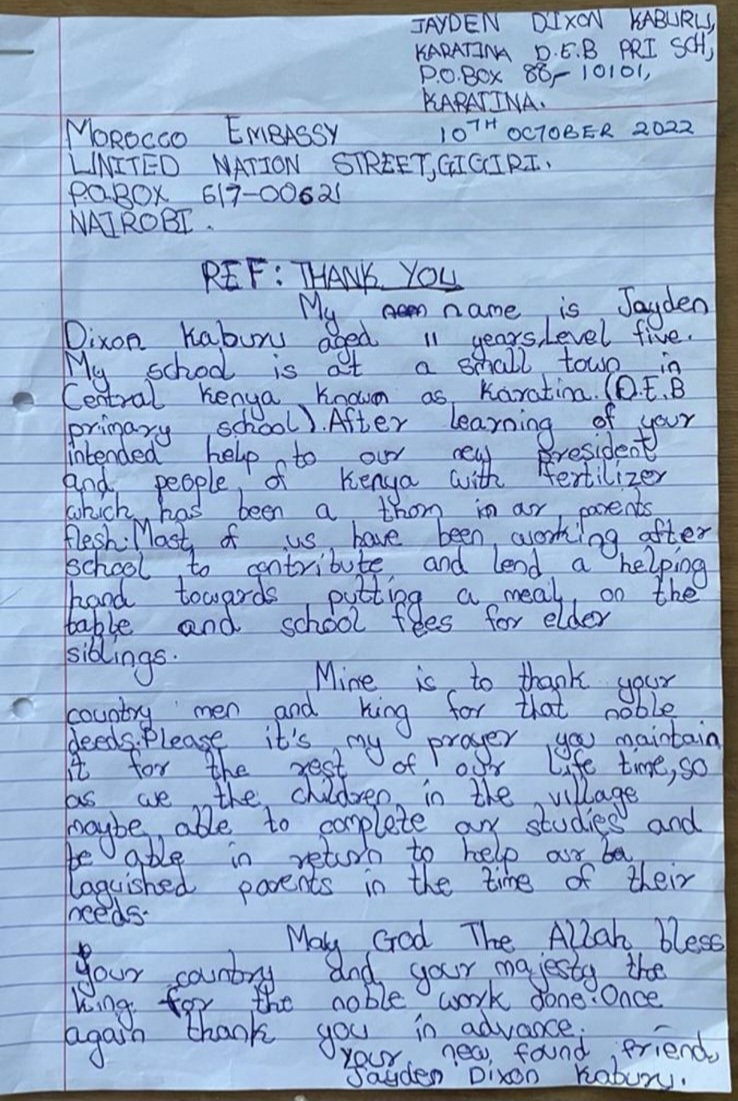 JAYDEN DIXON KABURU,
KARATINA D.E.B PRI SCH,
P.O.BOX 88-10101,
KARATINA.
10TH OCTOBER 2022
MOROCCO EMBASSY
UNITED NATION STREET,GIGIRI.
P.O.BOX 617-00621
NAIROBI.
REF: THANK YOU
My name is Jayden
Dixon Kaburu aged 11 years,Level five.
My school is at a small town in
Central Kenya known as Karatina.(D.E.B
primary school).After learning of your
intended help to our new president
and people of Kenya with fertilizer
which has been a thorn in our parents
flesh.Most of us have been working after
school to contribute and lend a helping
hand towards putting a meal on the
table and school fees for elder
siblings.
Mine is to thank your
country men and king for that noble
deeds.Please it's my prayer you maintain
it for the rest of our life time,so
as we the children in the village
maybe able to complete our studies and
be able in return to help our
laguished parents in the time of their
needs.
May God The Allah bless
your country and your majesty the
king for the noble work done.Once
again thank you in advance.
Your new found friend,
Jayden Dixon Kaburu.